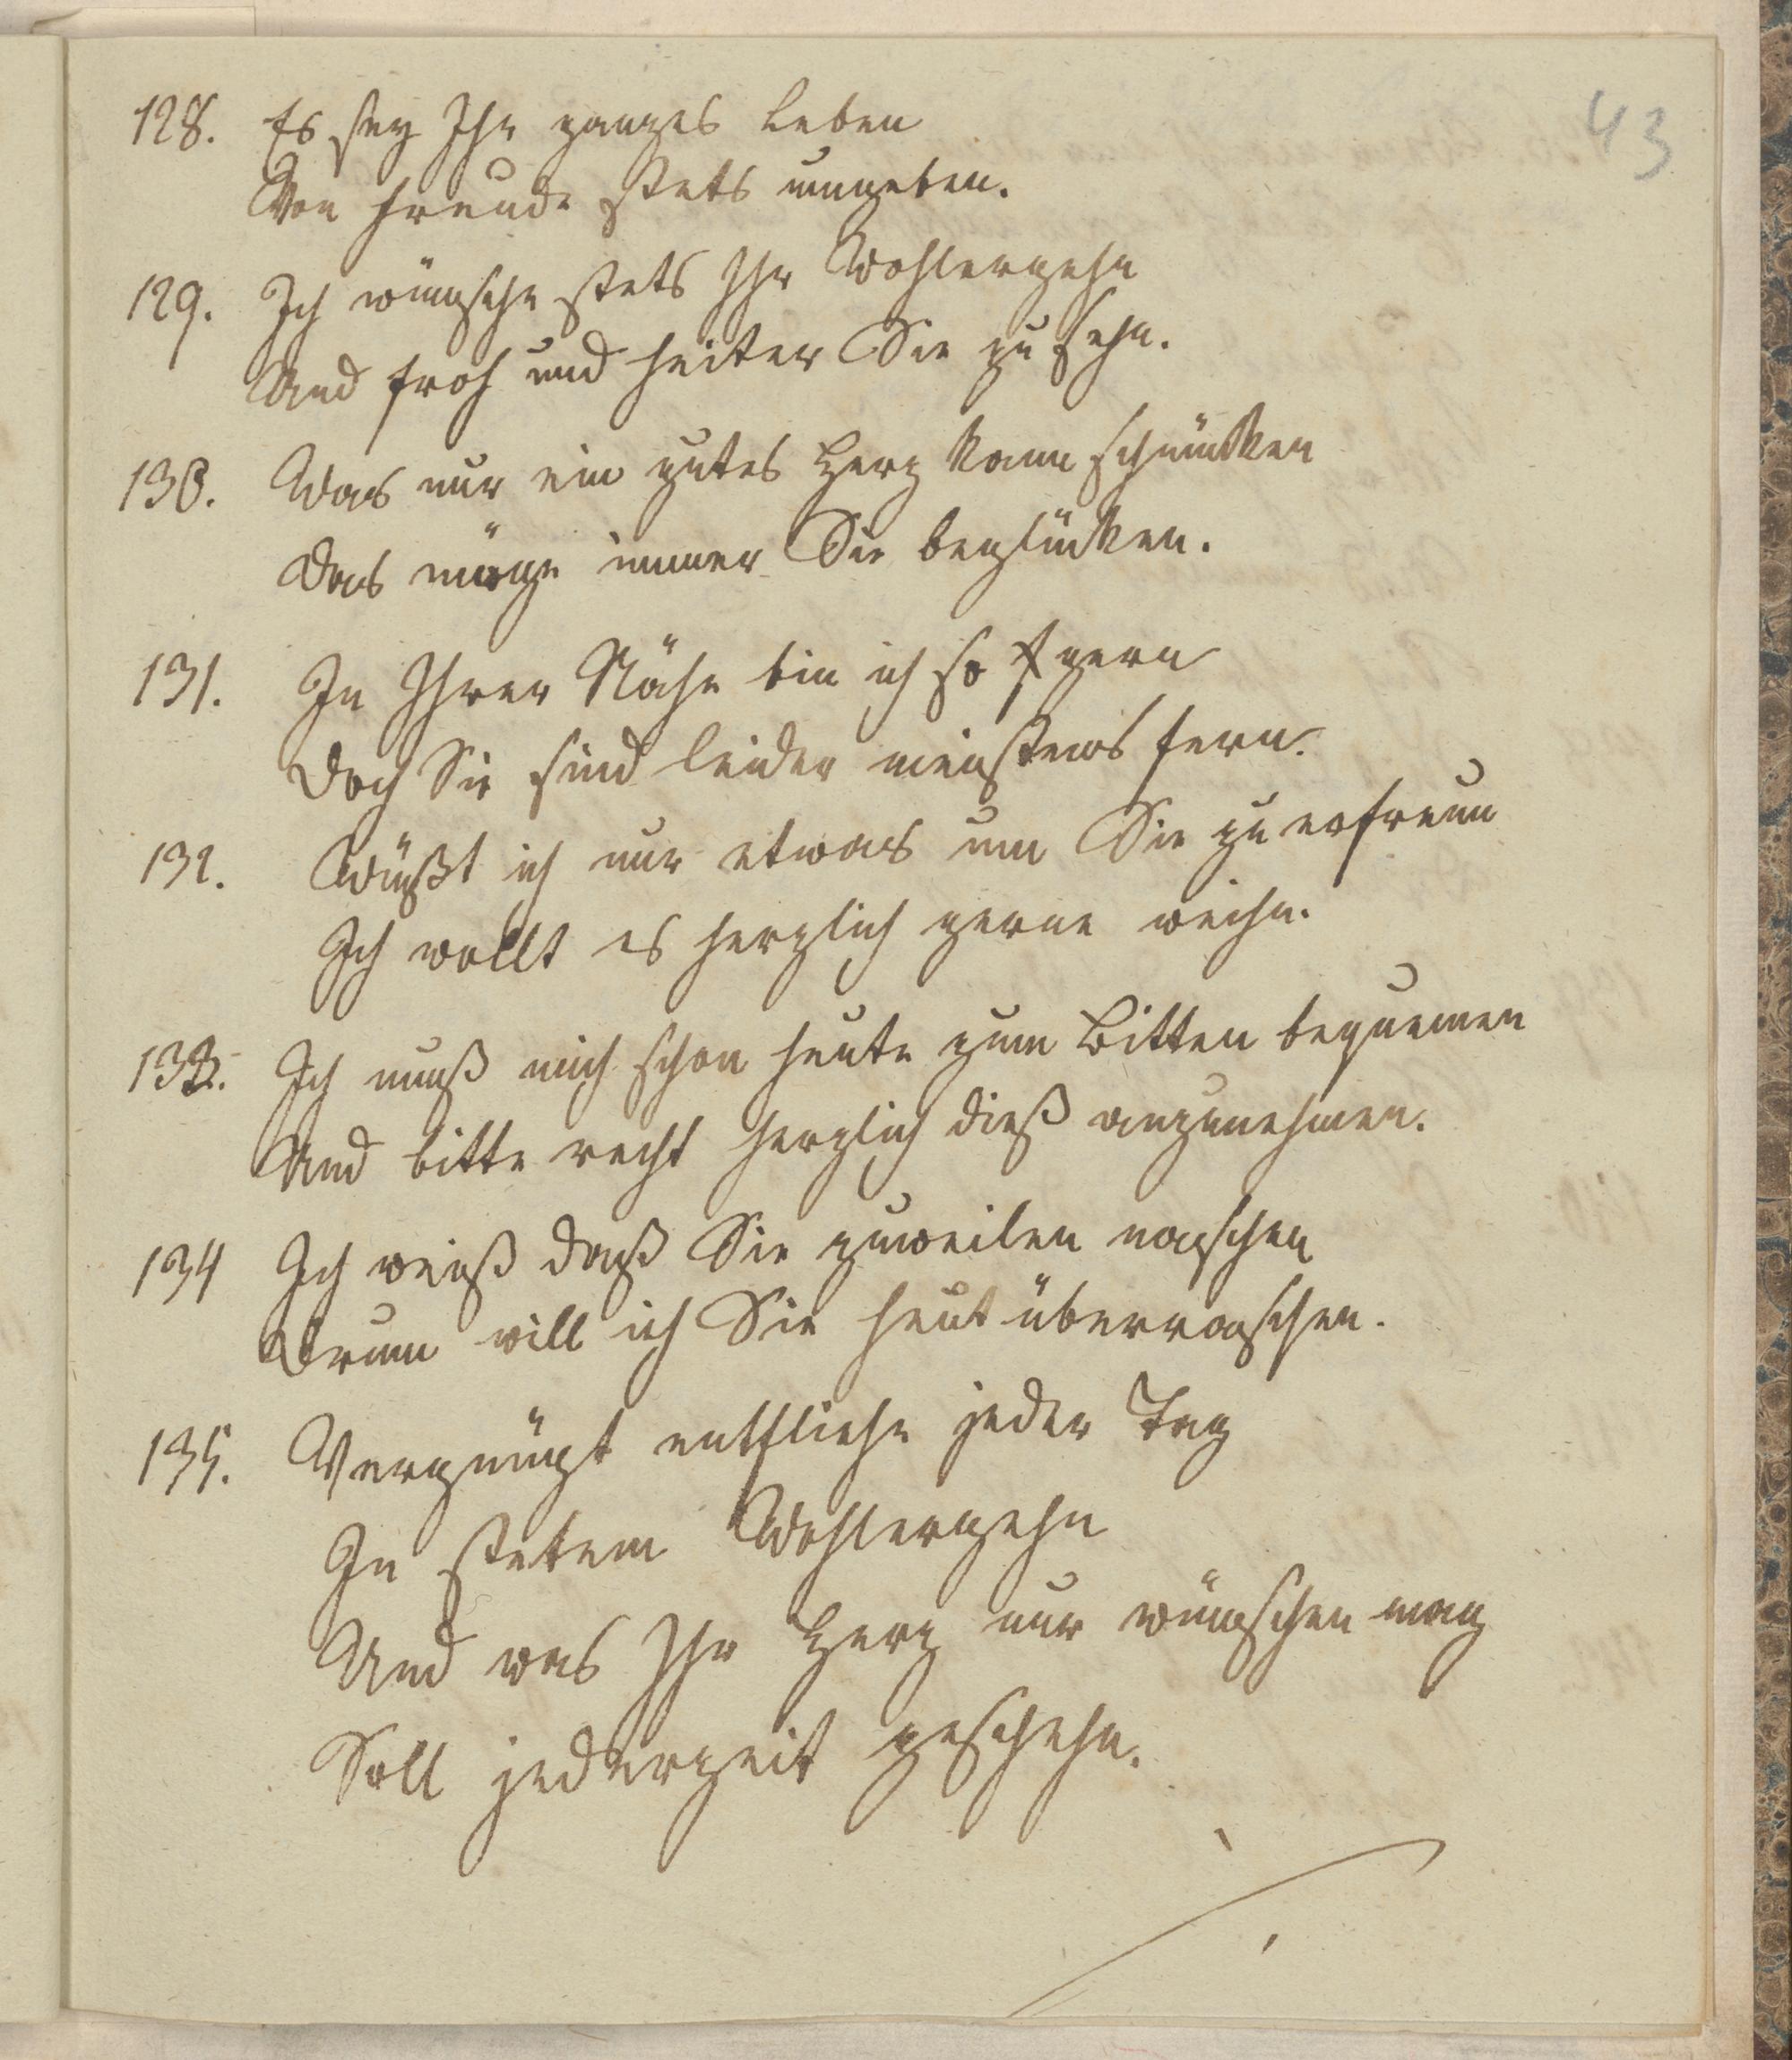 43
128. Es sey Ihr ganzes Leben
Von Freude stets umgeben.
129. Ich wünsche stets Ihr Wohlergehn
Und froh und heiter Sie zu sehn.
130. Was nur ein gutes Herz kann schmücken
Das möge immer Sie beglücken.
131. In Ihrer Nähe bin ich so gern
Doch Sie sind leider meistens fern.
132. Wüßt ich nur etwas um Sie zu erfreun
Ich wollt es herzlich gerne weihn.
133. Ich muß mich schon heute zum Bitten bequemen
Und bitte recht herzlich dieß anzunehmen.
134 Ich weiß daß Sie zuweilen naschen
Drum will ich Sie heut überraschen.
135. Vergnügt entfliehe jeder Tag
In stetem Wohlergehn
Und was Ihr Herz nur wünschen mag
Soll jederzeit geschehn.